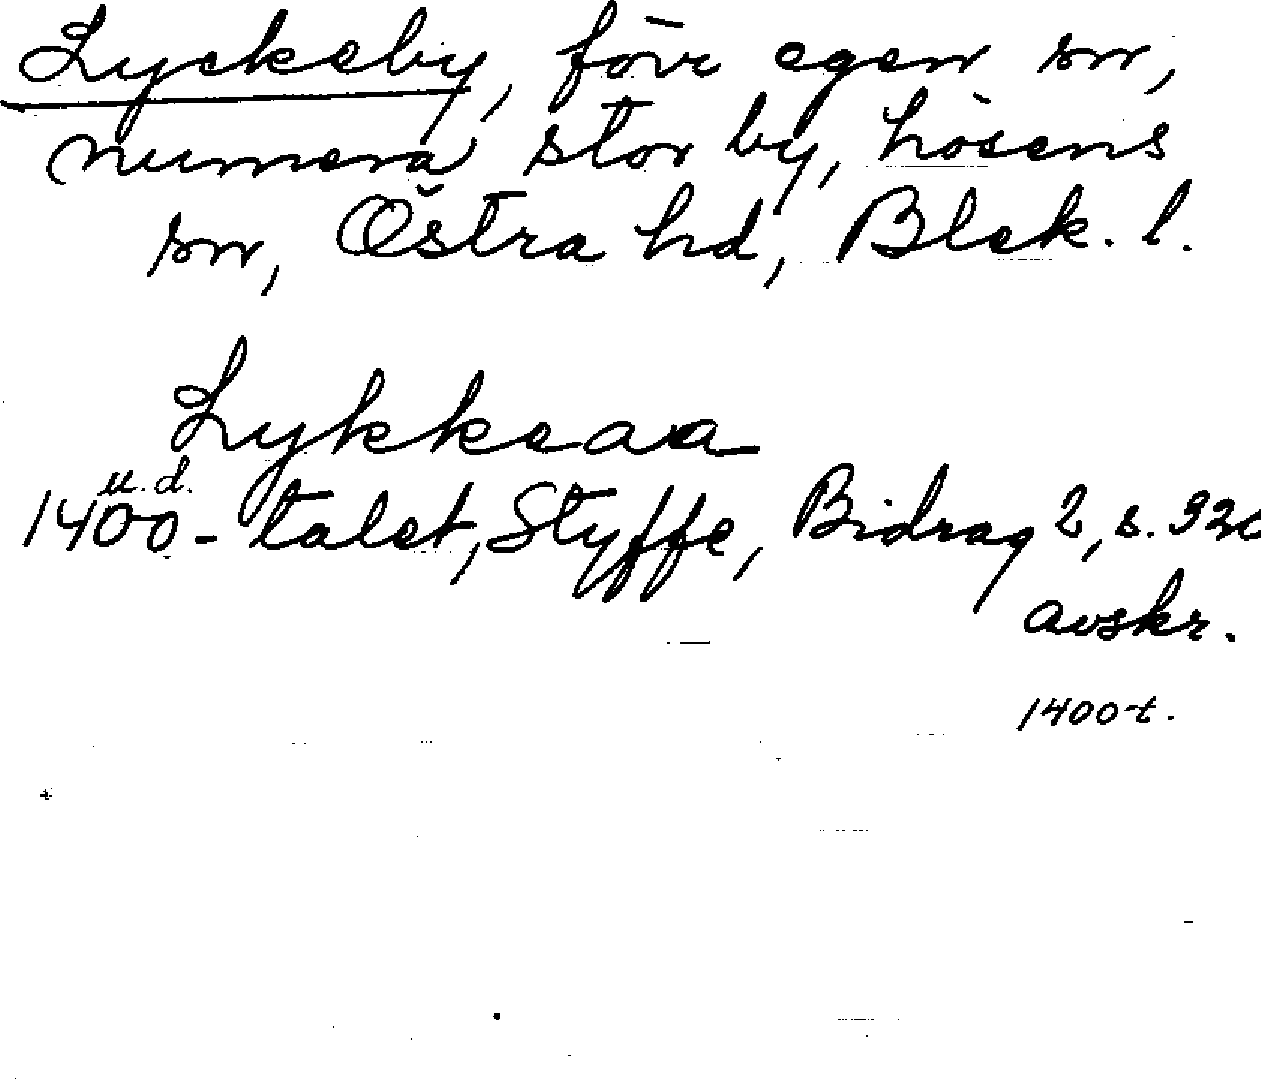 Lyckeby, förr egen sn,
numera stor by, Lösens
sn, Östra hd, Blek. l.
Lykkeaa
u.d.
1400-talet, Styffe, Bidrag 2, s.
avskr.
1400-t.